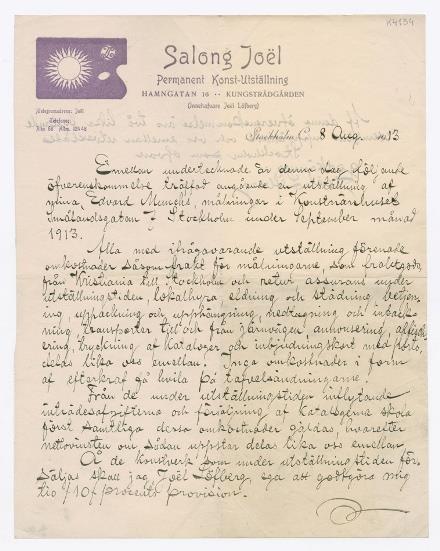 K4134
Salong Joël
Permanent Konst-Utställning
HAMNGATAN 16 -- KUNGSTRÄDGÅRDEN
(Innehafvare Joël Löfberg)
Telegramadress: Joël
Telefoner:
Stockholm C. 8 Aug. 1913
Emellan undertecknade är denna dag följande
öfverenskommelse träffad angående en utställning af
Edvard Munchs målningar i Konstnärshuset
Smålandsgatan 7 Stockholm under September månad
1913.
Alla med ifrågavarande utställning förenade
omkostnader såsom frakt för målningarne, som fraktgods
från Kristiania till Stockholm och retur assurans under
utställningstiden, lokalhyra, eldning och städning,
uppackning och upphängning, nedtagning och inpack-
ning, transporter till och från järnvägen, annonsering,
tryckning af kataloger och inbjudningskort med porto,
delas lika oss emellan. Inga omkostnader i form
af efterkraf få hvila på tafvelsändningarne.
Från de under utställningstiden influtande
inträdesafgifterna och försäljning af katalogerna skola
först samtliga dessa omkostnader gäldas, hvarefter
nettovinsten om sådan uppstår delas lika oss emellan
Å de konstverk som under utställningstiden för-
säljas skall jag, Joël Löfberg, ega att godtgöra mig
tio /10/ procents provision.